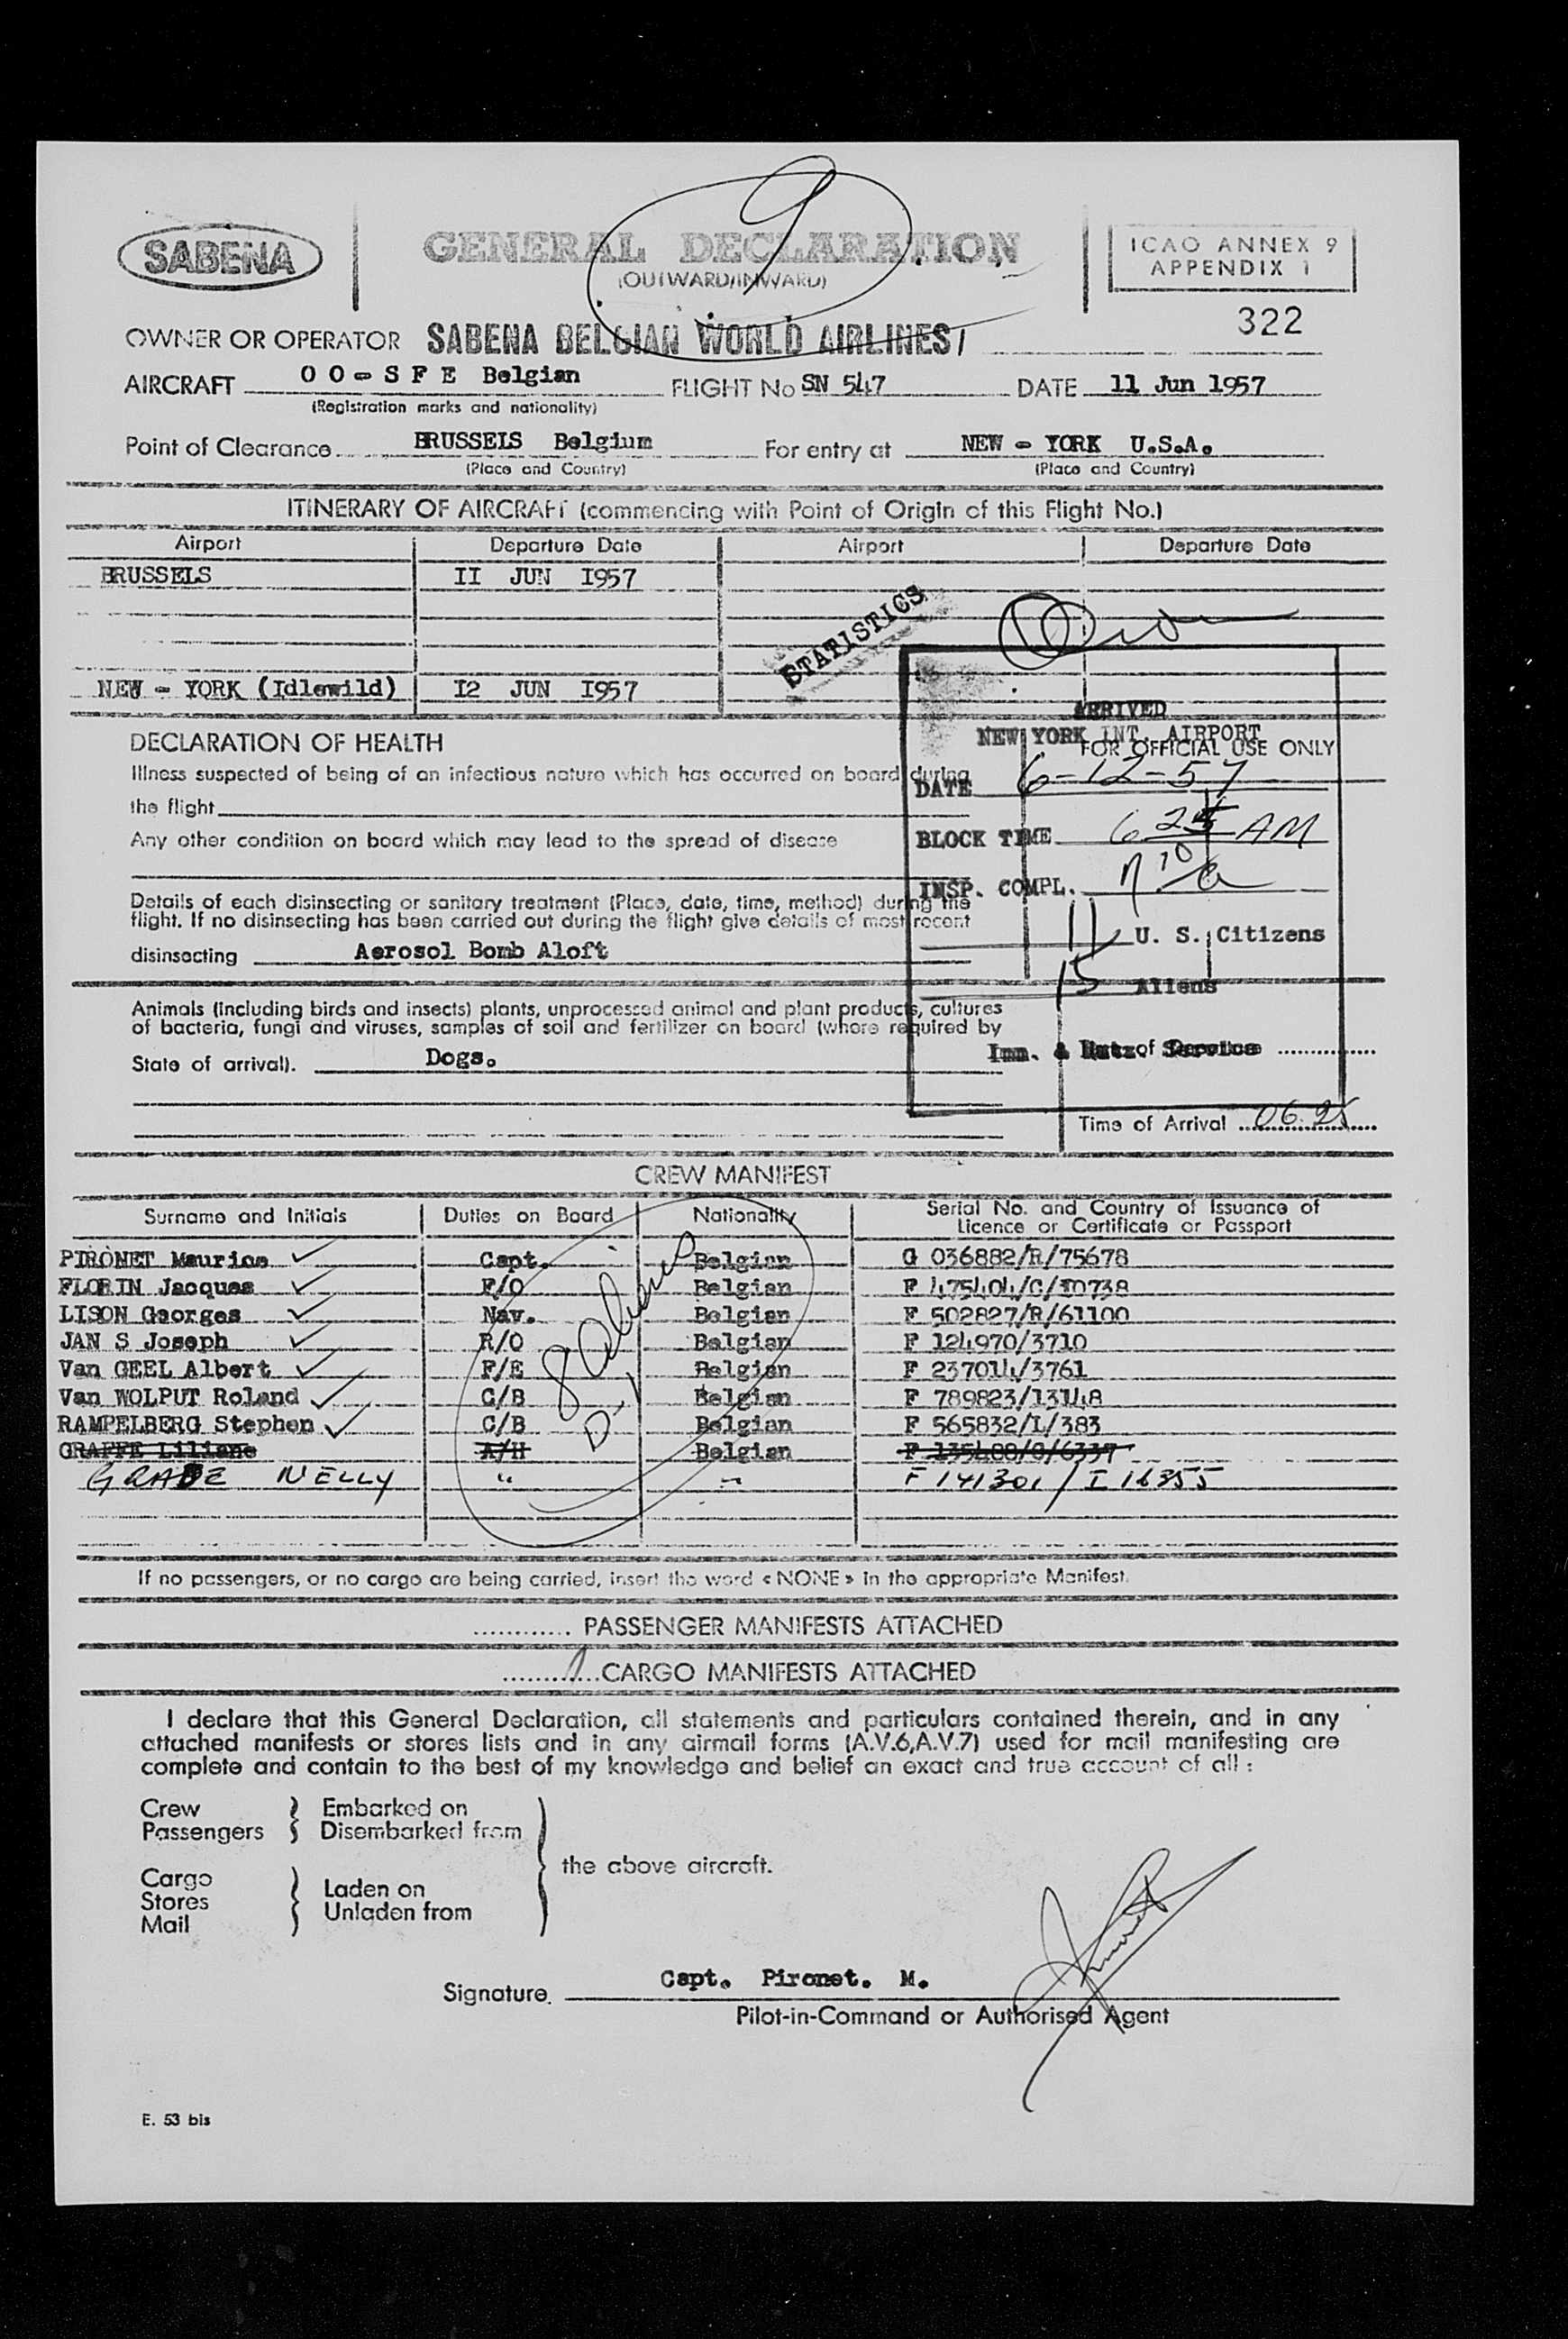 9
SABENA
GENERAL DECLARATION
(OUTWARD/INWARD)
ICAO ANNEX 9
APPENDIX 1
322
OWNER OR OPERATOR SABENA BELGIAN WORLD AIRLINES
AIRCRAFT OO-SFE Belgian FLIGHT No SN 547 DATE 11 Jun 1957
(Registration marks and nationality)
Point of Clearance BRUSSELS Belgium For entry at NEW - YORK U.S.A.
(Place and Country) (Place and Country)
ITINERARY OF AIRCRAFT (commencing with Point of Origin of this Flight No.)
Airport Departure Date Airport Departure Date
BRUSSELS II JUN I957
STATISTICS
NEW - YORK (Idlewild) I2 JUN I957
ARRIVED
NEW YORK INT. AIRPORT
FOR OFFICIAL USE ONLY
DATE 6-12-57
BLOCK TIME 6 25 AM
INSP. COMPL.
11 U. S. Citizens
15 Aliens
Imm. & Natz. Service
Time of Arrival 06.25
DECLARATION OF HEALTH
Illness suspected of being of an infectious nature which has occurred on board during
the flight
Any other condition on board which may lead to the spread of disease
Details of each disinsecting or sanitary treatment (Place, date, time, method) during the
flight. If no disinsecting has been carried out during the flight give details of most recent
disinsecting Aerosol Bomb Aloft
Animals (including birds and insects) plants, unprocessed animal and plant products, cultures
of bacteria, fungi and viruses, samples of soil and fertilizer on board (where required by
State of arrival). Dogs.
CREW MANIFEST
Surname and Initials Duties on Board Nationality Serial No. and Country of Issuance of
Licence or Certificate or Passport
PIRONET Maurice Capt. Belgian G 036882/R/75678
FLORIN Jacques F/O Belgian F 475404/C/80738
LISON Georges Nav. Belgian F 502827/R/61100
JAN S Joseph R/O Belgian F 124970/3710
Van GEEL Albert F/E Belgian F 237014/3761
Van WOLPUT Roland C/B Belgian F 789823/13148
RAMPELBERG Stephen C/B Belgian F 565832/L/383
GRAFFE Liliane A/H Belgian
GRADE NELLY " " F 141301 / I 16355
8 Aliens
D-1
If no passengers, or no cargo are being carried, insert the word «NONE» in the appropriate Manifest.
............ PASSENGER MANIFESTS ATTACHED
.........1...CARGO MANIFESTS ATTACHED
I declare that this General Declaration, all statements and particulars contained therein, and in any
attached manifests or stores lists and in any airmail forms (A.V.6,A.V.7) used for mail manifesting are
complete and contain to the best of my knowledge and belief an exact and true account of all :
Crew Embarked on
Passengers Disembarked from
the above aircraft.
Cargo
Stores Laden on
Mail Unladen from
Capt. Pironet. M.
Signature
Pilot-in-Command or Authorised Agent
E. 53 bis